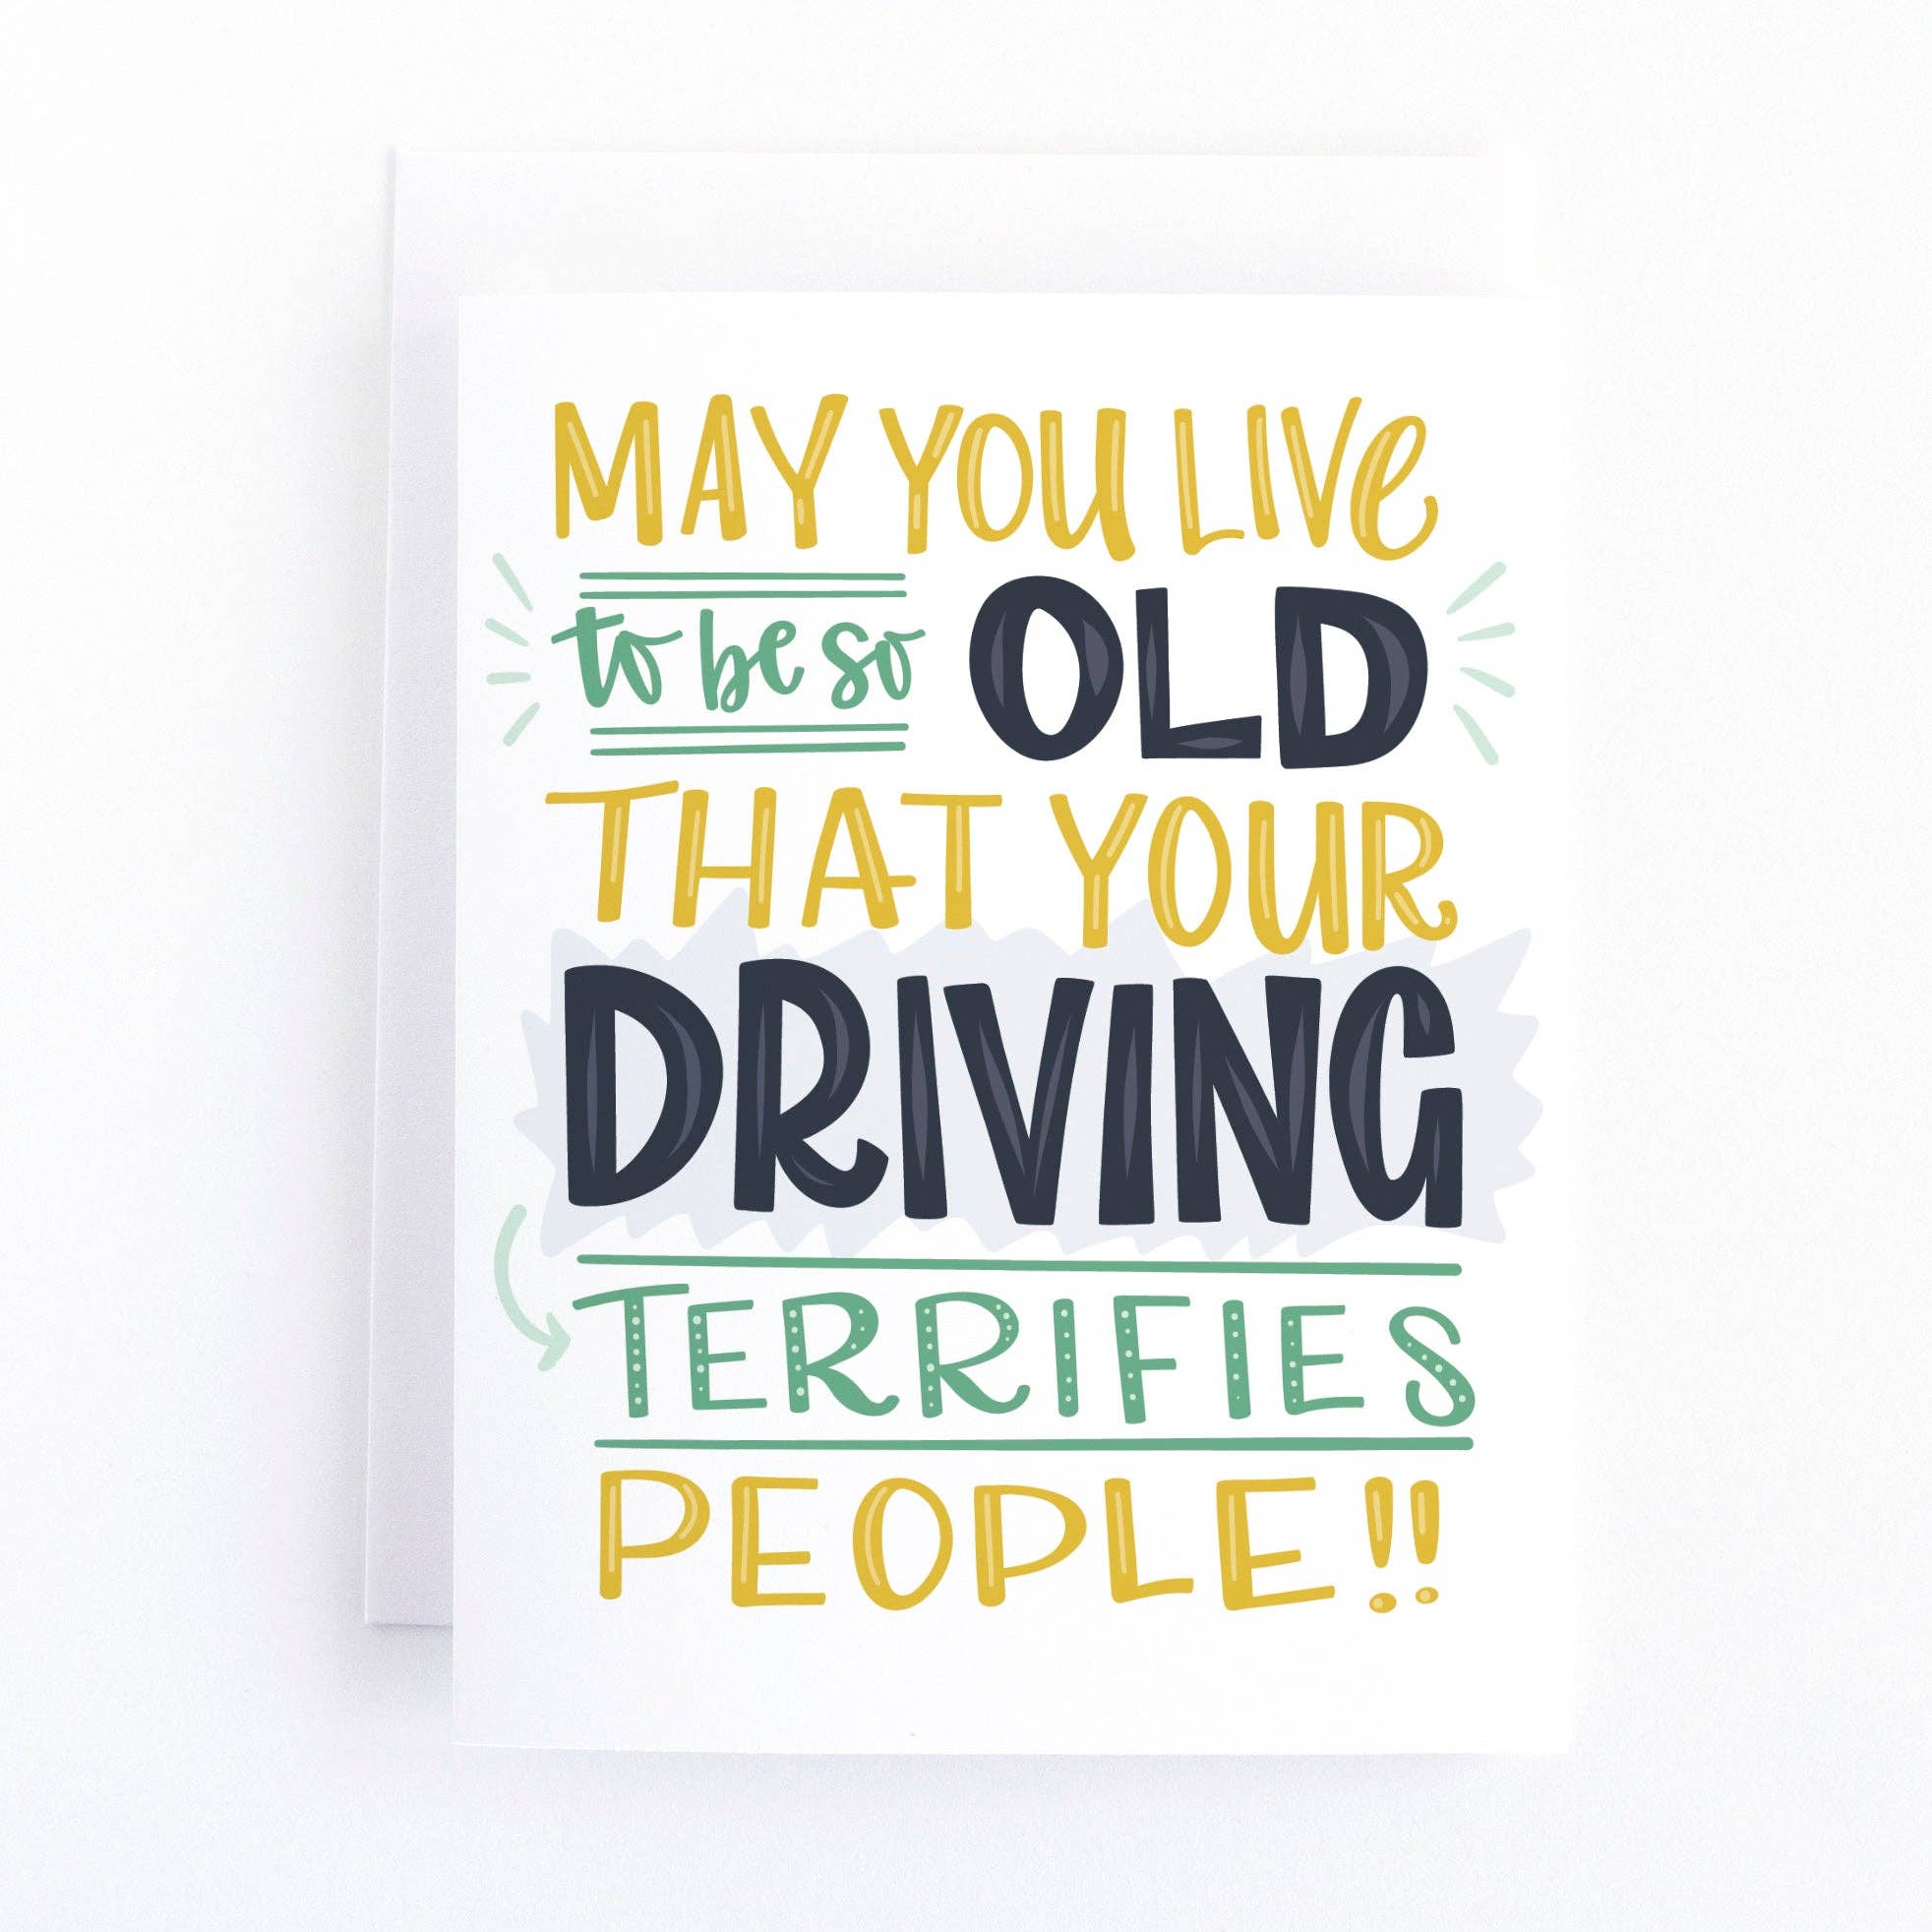 MAY YOU LIVe
to be so OLD
THAT YOUR
DRIVING
TERRIFIES
PEOPLE!!